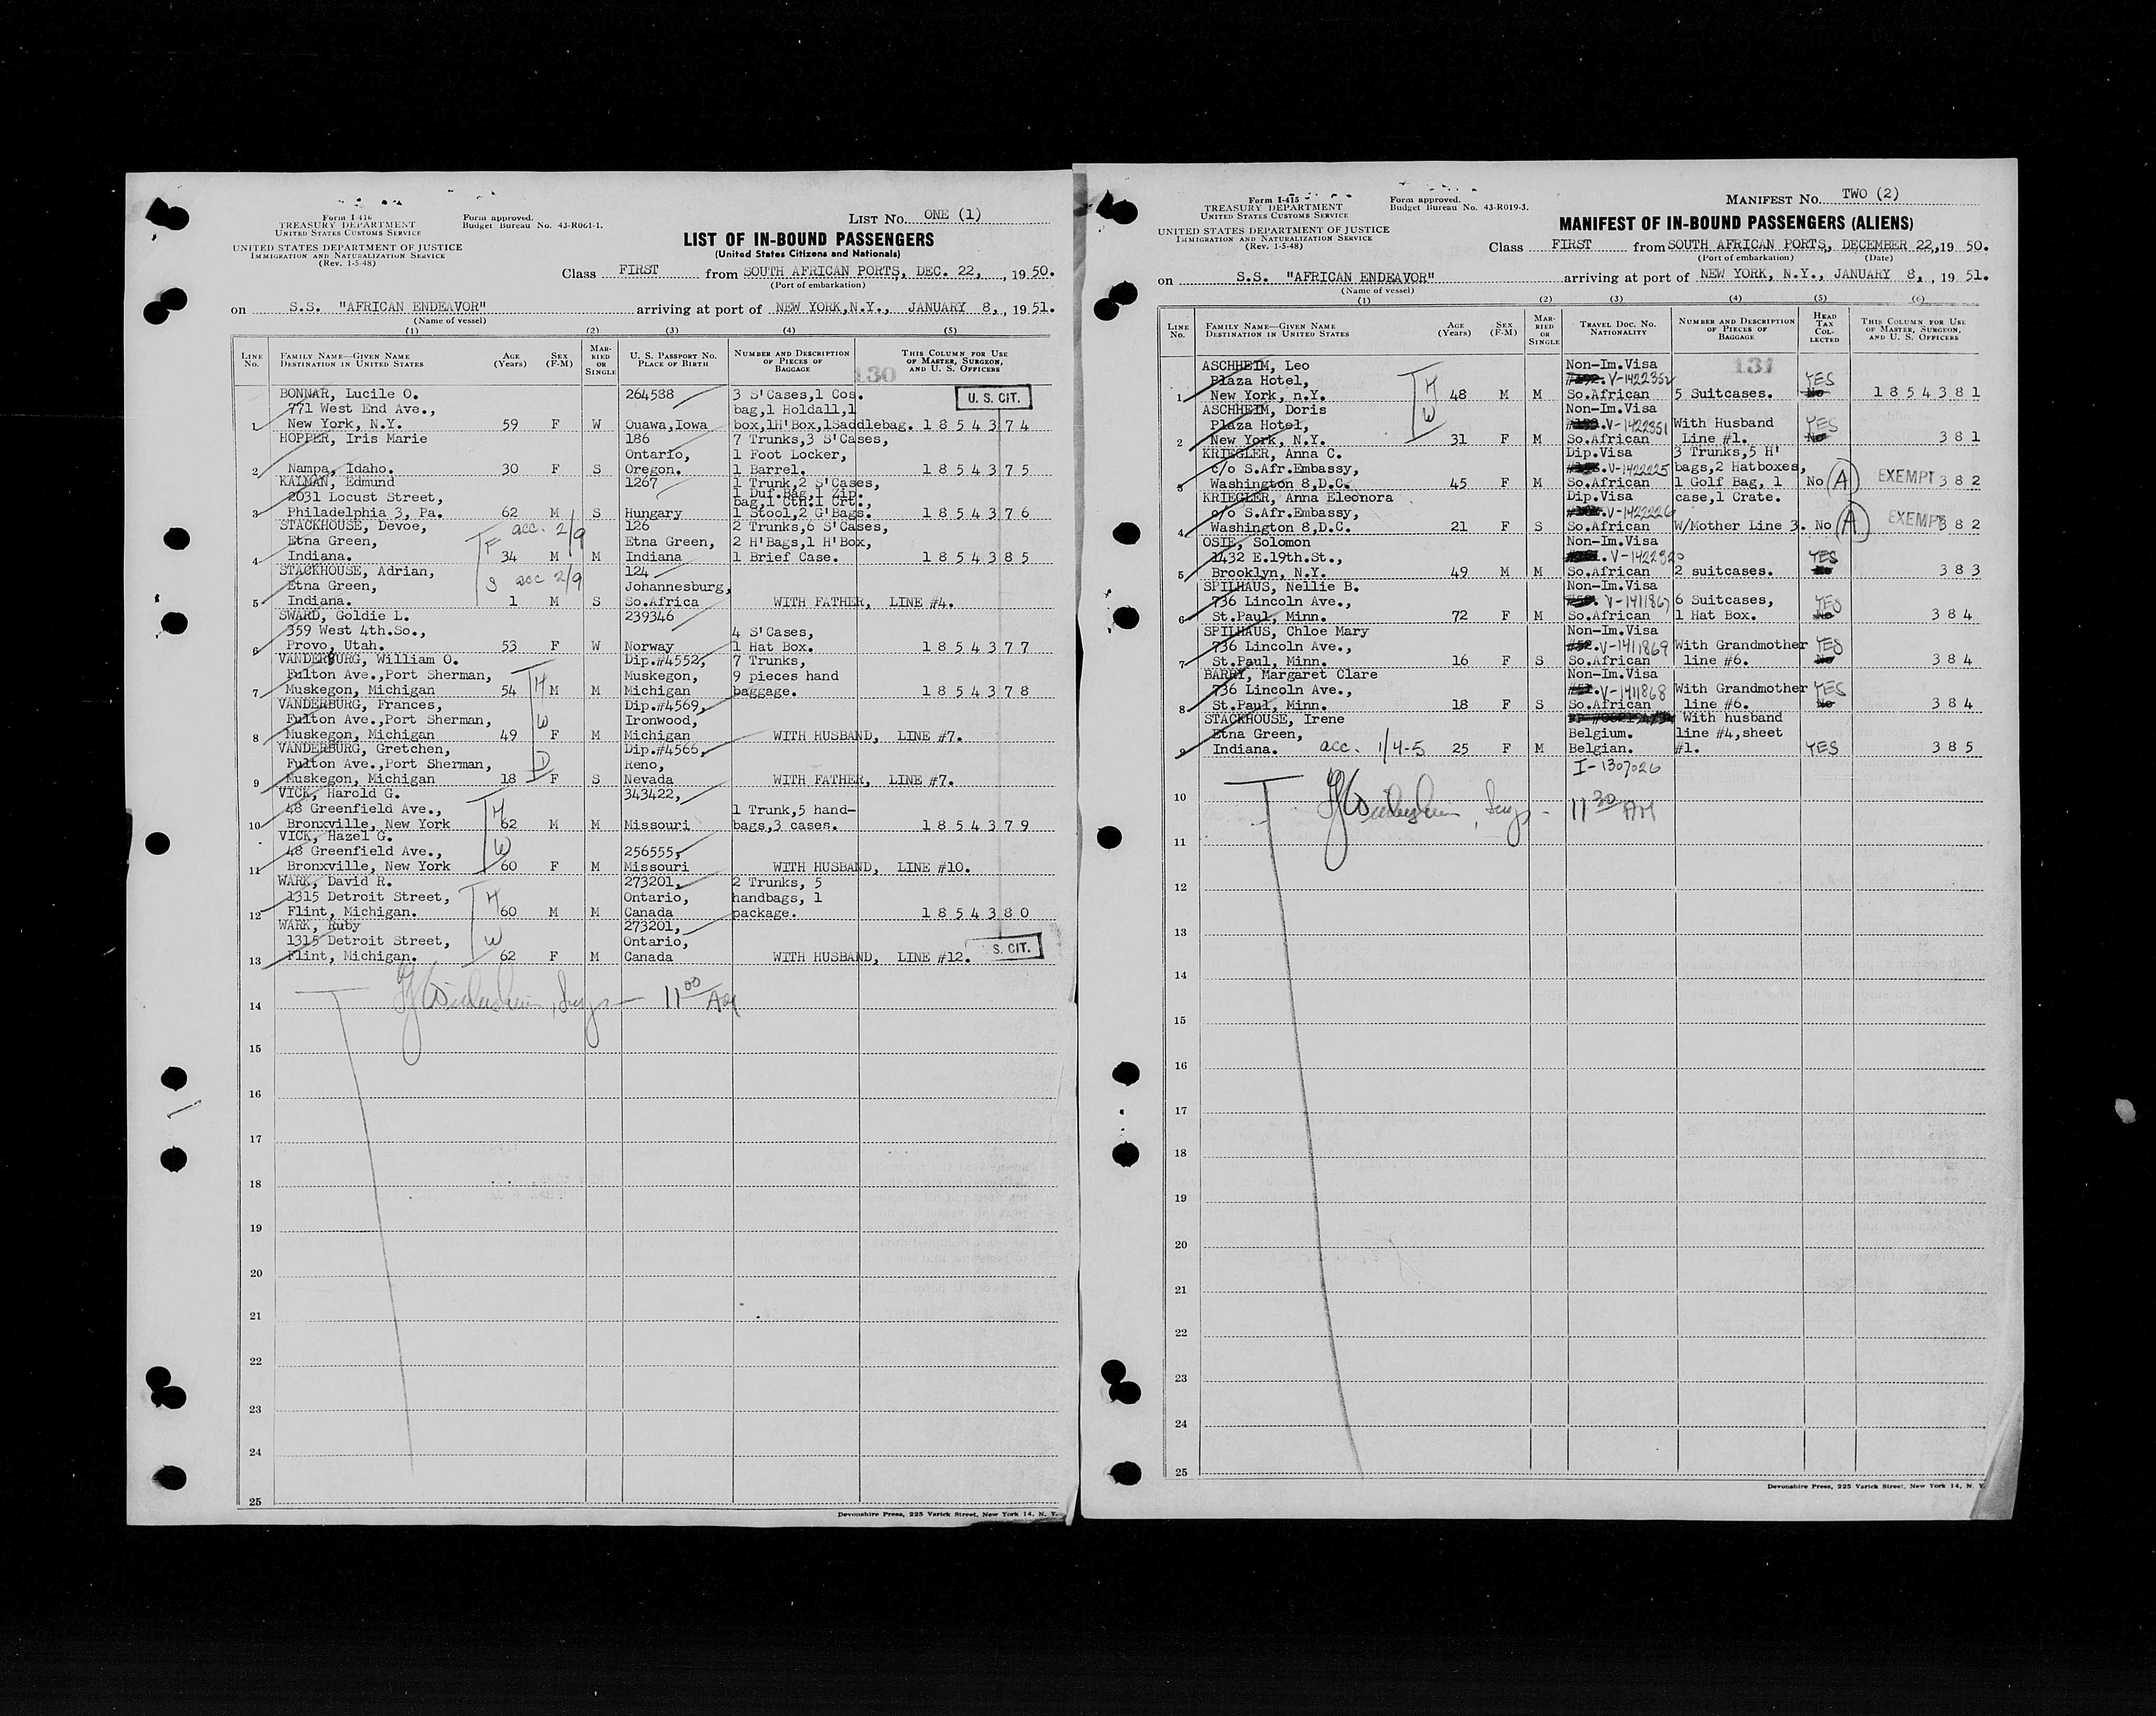 Form I-416
TREASURY DEPARTMENT
UNITED STATES CUSTOMS SERVICE
UNITED STATES DEPARTMENT OF JUSTICE
IMMIGRATION AND NATURALIZATION SERVICE
(Rev. 1-5-48)
Form approved.
Budget Bureau No. 43-R061-1.
LIST No. ONE (1)
LIST OF IN-BOUND PASSENGERS
(United States Citizens and Nationals)
Class FIRST from SOUTH AFRICAN PORTS, DEC. 22, , 1950.
(Port of embarkation)
on S.S. "AFRICAN ENDEAVOR" arriving at port of NEW YORK,N.Y., JANUARY 8, , 1951.
(Name of vessel)
(1) (2) (3) (4) (5)
LINE No. FAMILY NAME—GIVEN NAME DESTINATION IN UNITED STATES AGE (Years) SEX (F-M) MARRIED OR SINGLE U. S. PASSPORT No. PLACE OF BIRTH NUMBER AND DESCRIPTION OF PIECES OF BAGGAGE THIS COLUMN FOR USE OF MASTER, SURGEON, AND U. S. OFFICERS
130
U. S. CIT.
BONNAR, Lucile O. 264588 3 S'Cases,1 Cos.
771 West End Ave., bag,1 Holdall,1
1 New York, N.Y. 59 F W Ouawa,Iowa box,1H'Box,1Saddlebag. 1854374
HOPPER, Iris Marie 186 7 Trunks,3 S'Cases,
Ontario, 1 Foot Locker,
2 Nampa, Idaho. 30 F S Oregon. 1 Barrel. 1854375
KALMAN, Edmund 1267 1 Trunk,2 S'Cases,
2031 Locust Street, 1 Duf.Bag,1 Zip.
bag,1 Ctn.1 Crt.,
3 Philadelphia 3, Pa. 62 M S Hungary 1 Stool,2 G'Bags. 1854376
STACKHOUSE, Devoe, acc. 2/9 126 2 Trunks,6 S'Cases,
Etna Green, F Etna Green, 2 H'Bags,1 H'Box,
4 Indiana. 34 M M Indiana 1 Brief Case. 1854385
STACKHOUSE, Adrian, S acc 2/9 124
Etna Green, Johannesburg,
5 Indiana. 1 M S So.Africa WITH FATHER, LINE #4.
SWARD, Goldie L. 239346
359 West 4th.So., 4 S'Cases,
6 Provo, Utah. 53 F W Norway 1 Hat Box. 1854377
VANDERBURG, William O. Dip.#4552, 7 Trunks,
Fulton Ave.,Port Sherman, H Muskegon, 9 pieces hand
7 Muskegon, Michigan 54 M M Michigan baggage. 1854378
VANDERBURG, Frances, Dip.#4569,
Fulton Ave.,Port Sherman, W Ironwood,
8 Muskegon, Michigan 49 F M Michigan WITH HUSBAND, LINE #7.
VANDERBURG, Gretchen, Dip.#4566,
Fulton Ave.,Port Sherman, D Reno,
9 Muskegon, Michigan 18 F S Nevada WITH FATHER, LINE #7.
VICK, Harold G. 343422,
48 Greenfield Ave., H 1 Trunk,5 hand-
10 Bronxville, New York 62 M M Missouri bags,3 cases. 1854379
VICK, Hazel G.
48 Greenfield Ave., W 256555,
11 Bronxville, New York 60 F M Missouri WITH HUSBAND, LINE #10.
WARK, David R. 273201, 2 Trunks, 5
1315 Detroit Street, H Ontario, handbags, 1
12 Flint, Michigan. 60 M M Canada package. 1854380
WARK, Ruby 273201,
1315 Detroit Street, W Ontario,
13 Flint, Michigan. 62 F M Canada WITH HUSBAND, LINE #12.
S. CIT.
14 11 00 AM
15
16
17
18
19
20
21
22
23
24
25
Devonshire Press, 225 Varick Street, New York 14, N. Y.
Form I-415
TREASURY DEPARTMENT
UNITED STATES CUSTOMS SERVICE
UNITED STATES DEPARTMENT OF JUSTICE
IMMIGRATION AND NATURALIZATION SERVICE
(Rev. 1-5-48)
Form approved.
Budget Bureau No. 43-R019-3.
MANIFEST No. TWO (2)
MANIFEST OF IN-BOUND PASSENGERS (ALIENS)
Class FIRST from SOUTH AFRICAN PORTS, DECEMBER 22,19 50.
(Port of embarkation) (Date)
on S.S. "AFRICAN ENDEAVOR" arriving at port of NEW YORK, N.Y., JANUARY 8, , 19 51.
(Name of vessel)
(1) (2) (3) (4) (5) (6)
LINE No. FAMILY NAME—GIVEN NAME DESTINATION IN UNITED STATES AGE (Years) SEX (F-M) MARRIED OR SINGLE TRAVEL DOC. NO. NATIONALITY NUMBER AND DESCRIPTION OF PIECES OF BAGGAGE HEAD TAX COLLECTED THIS COLUMN FOR USE OF MASTER, SURGEON, AND U. S. OFFICERS
131
ASCHHEIM, Leo Non-Im.Visa
Plaza Hotel, H V-1422352 YES
1 New York, n.Y. 48 M M So.African 5 Suitcases. No 1854381
ASCHHEIM, Doris Non-Im.Visa
Plaza Hotel, W V-1422351 With Husband YES
2 New York, N.Y. 31 F M So.African Line #1. No 381
KRIEGLER, Anna C. Dip.Visa 3 Trunks,5 H'
c/o S.Afr.Embassy, V-1422225 bags,2 Hatboxes,
3 Washington 8,D.C. 45 F M So.African 1 Golf Bag, 1 No (A) EXEMPT 382
KRIEGLER, Anna Eleonora Dip.Visa case,1 Crate.
c/o S.Afr.Embassy, V-1422226
4 Washington 8,D.C. 21 F S So.African W/Mother Line 3. No (A) EXEMPT 382
OSIE, Solomon Non-Im.Visa
1432 E.19th.St., V-1422320 YES
5 Brooklyn, N.Y. 49 M M So.African 2 suitcases. No 383
SPILHAUS, Nellie B. Non-Im.Visa
736 Lincoln Ave., V-1411867 6 Suitcases, YES
6 St.Paul, Minn. 72 F M So.African 1 Hat Box. No 384
SPILHAUS, Chloe Mary Non-Im.Visa
736 Lincoln Ave., V-1411869 With Grandmother YES
7 St.Paul, Minn. 16 F S So.African line #6. No 384
BARRY, Margaret Clare Non-Im.Visa
736 Lincoln Ave., V-1411868 With Grandmother YES
8 St.Paul, Minn. 18 F S So.African line #6. No 384
STACKHOUSE, Irene With husband
Etna Green, Belgium. line #4,sheet
9 Indiana. acc. 1/4-5 25 F M Belgian. #1. YES 385
I-1307026
10 11 30 AM
11
12
13
14
15
16
17
18
19
20
21
22
23
24
25
Devonshire Press, 225 Varick Street, New York 14, N. Y.